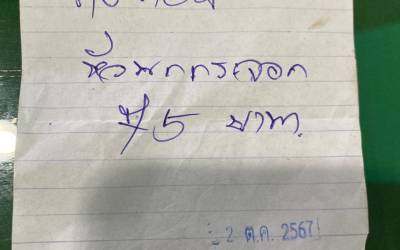 หัวนกกระจอก
75 บาท.
2 ต.ค. 2567